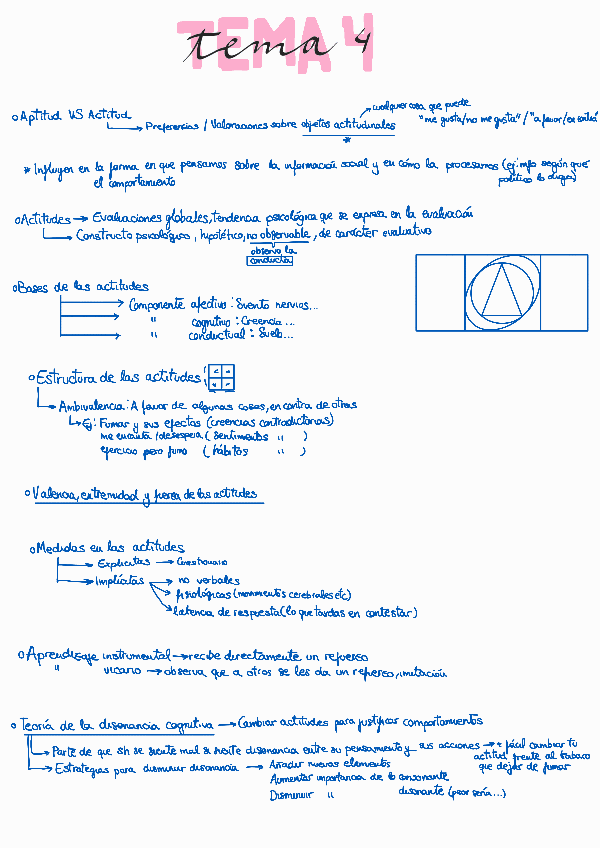 tema 4
○Aptitud VS Actitud
cualquier cosa que puede
Preferencias / Valoraciones sobre objetos actitudinales
"me gusta/no me gusta" / "a favor/en contra"
*
* Influyen en la forma en que pensamos sobre la información social y en cómo la procesamos (ej: mpo según qué
el comportamiento
político lo diga)
○Actitudes → Evaluaciones globales, tendencia psicológica que se expresa en la evaluación
Constructo psicológico, hipotético, no observable, de carácter evaluativo
observo la
conducta
○Bases de las actitudes
Componente afectivo: Siento nervios...
" cognitivo: Creencia...
" conductual: Suelo...
○Estructura de las actitudes
Ambivalencia: A favor de algunas cosas, en contra de otras
Ej: Fumar y sus efectos (creencias contradictorias)
me encanta /desespera (sentimientos " )
ejercicio pero fumo (hábitos " )
○Valencia, extremidad y fuerza de las actitudes
○Medidas en las actitudes
Explícitas → Cuestionario
Implícitas → no verbales
fisiológicas (movimientos cerebrales etc)
latencia de respuesta (lo que tardas en contestar)
○Aprendizaje instrumental → recibe directamente un refuerzo
" vicario → observa que a otros se les da un refuerzo, imitación
○Teoría de la disonancia cognitiva → Cambiar actitudes para justificar comportamientos
Parte de que sh se siente mal si existe disonancia entre su pensamiento y sus acciones → + fácil cambiar tu
actitud frente al tabaco
Estrategias para disminuir disonancia → Añadir nuevos elementos
que dejar de fumar
Aumentar importancia de lo consonante
Disminuir " disonante (peor sería...)